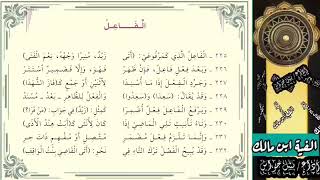 الْفَاعِلُ
٢٢٥ - الْفَاعِلُ الَّذِي كَمَرْفُوعَيْ: (أَتَى زَيْدٌ، مُنِيرًا وَجْهُهُ، نِعْمَ الْفَتَى)
٢٢٦ - وَبَعْدَ فِعْلٍ فَاعِلٌ، فَإِنْ ظَهَرْ فَهْوَ، وَإِلَّا فَضَمِيرٌ اسْتَتَرْ
٢٢٧ - وَجَرِّدِ الْفِعْلَ إِذَا مَا أُسْنِدَا لِاثْنَيْنِ أَوْ جَمْعٍ كَـ(فَازَ الشُّهَدَا)
٢٢٨ - وَقَدْ يُقَالُ: (سَعِدَا) وَ(سَعِدُوا) وَالْفِعْلُ لِلظَّاهِرِ - بَعْدُ - مُسْنَدُ
٢٢٩ - وَيَرْفَعُ الْفَاعِلَ فِعْلٌ أُضْمِرَا كَمِثْلِ: (زَيْدٌ) فِي جَوَابِ: (مَنْ قَرَا؟)
٢٣٠ - وَتَاءُ تَأْنِيثٍ تَلِي الْمَاضِي إِذَا كَانَ لِأُنْثَى كَـ(أَبَتْ هِنْدُ الْأَذَى)
٢٣١ - وَإِنَّمَا تَلْزَمُ فِعْلَ مُضْمَرِ مُتَّصِلٍ أَوْ مُفْهِمٍ ذَاتَ حِرِ
٢٣٢ - وَقَدْ يُبِيحُ الْفَصْلُ تَرْكَ التَّاءِ فِي نَحْوِ: (أَتَى الْقَاضِيَ بِنْتُ الْوَاقِفِ)
الفية ابن مالك